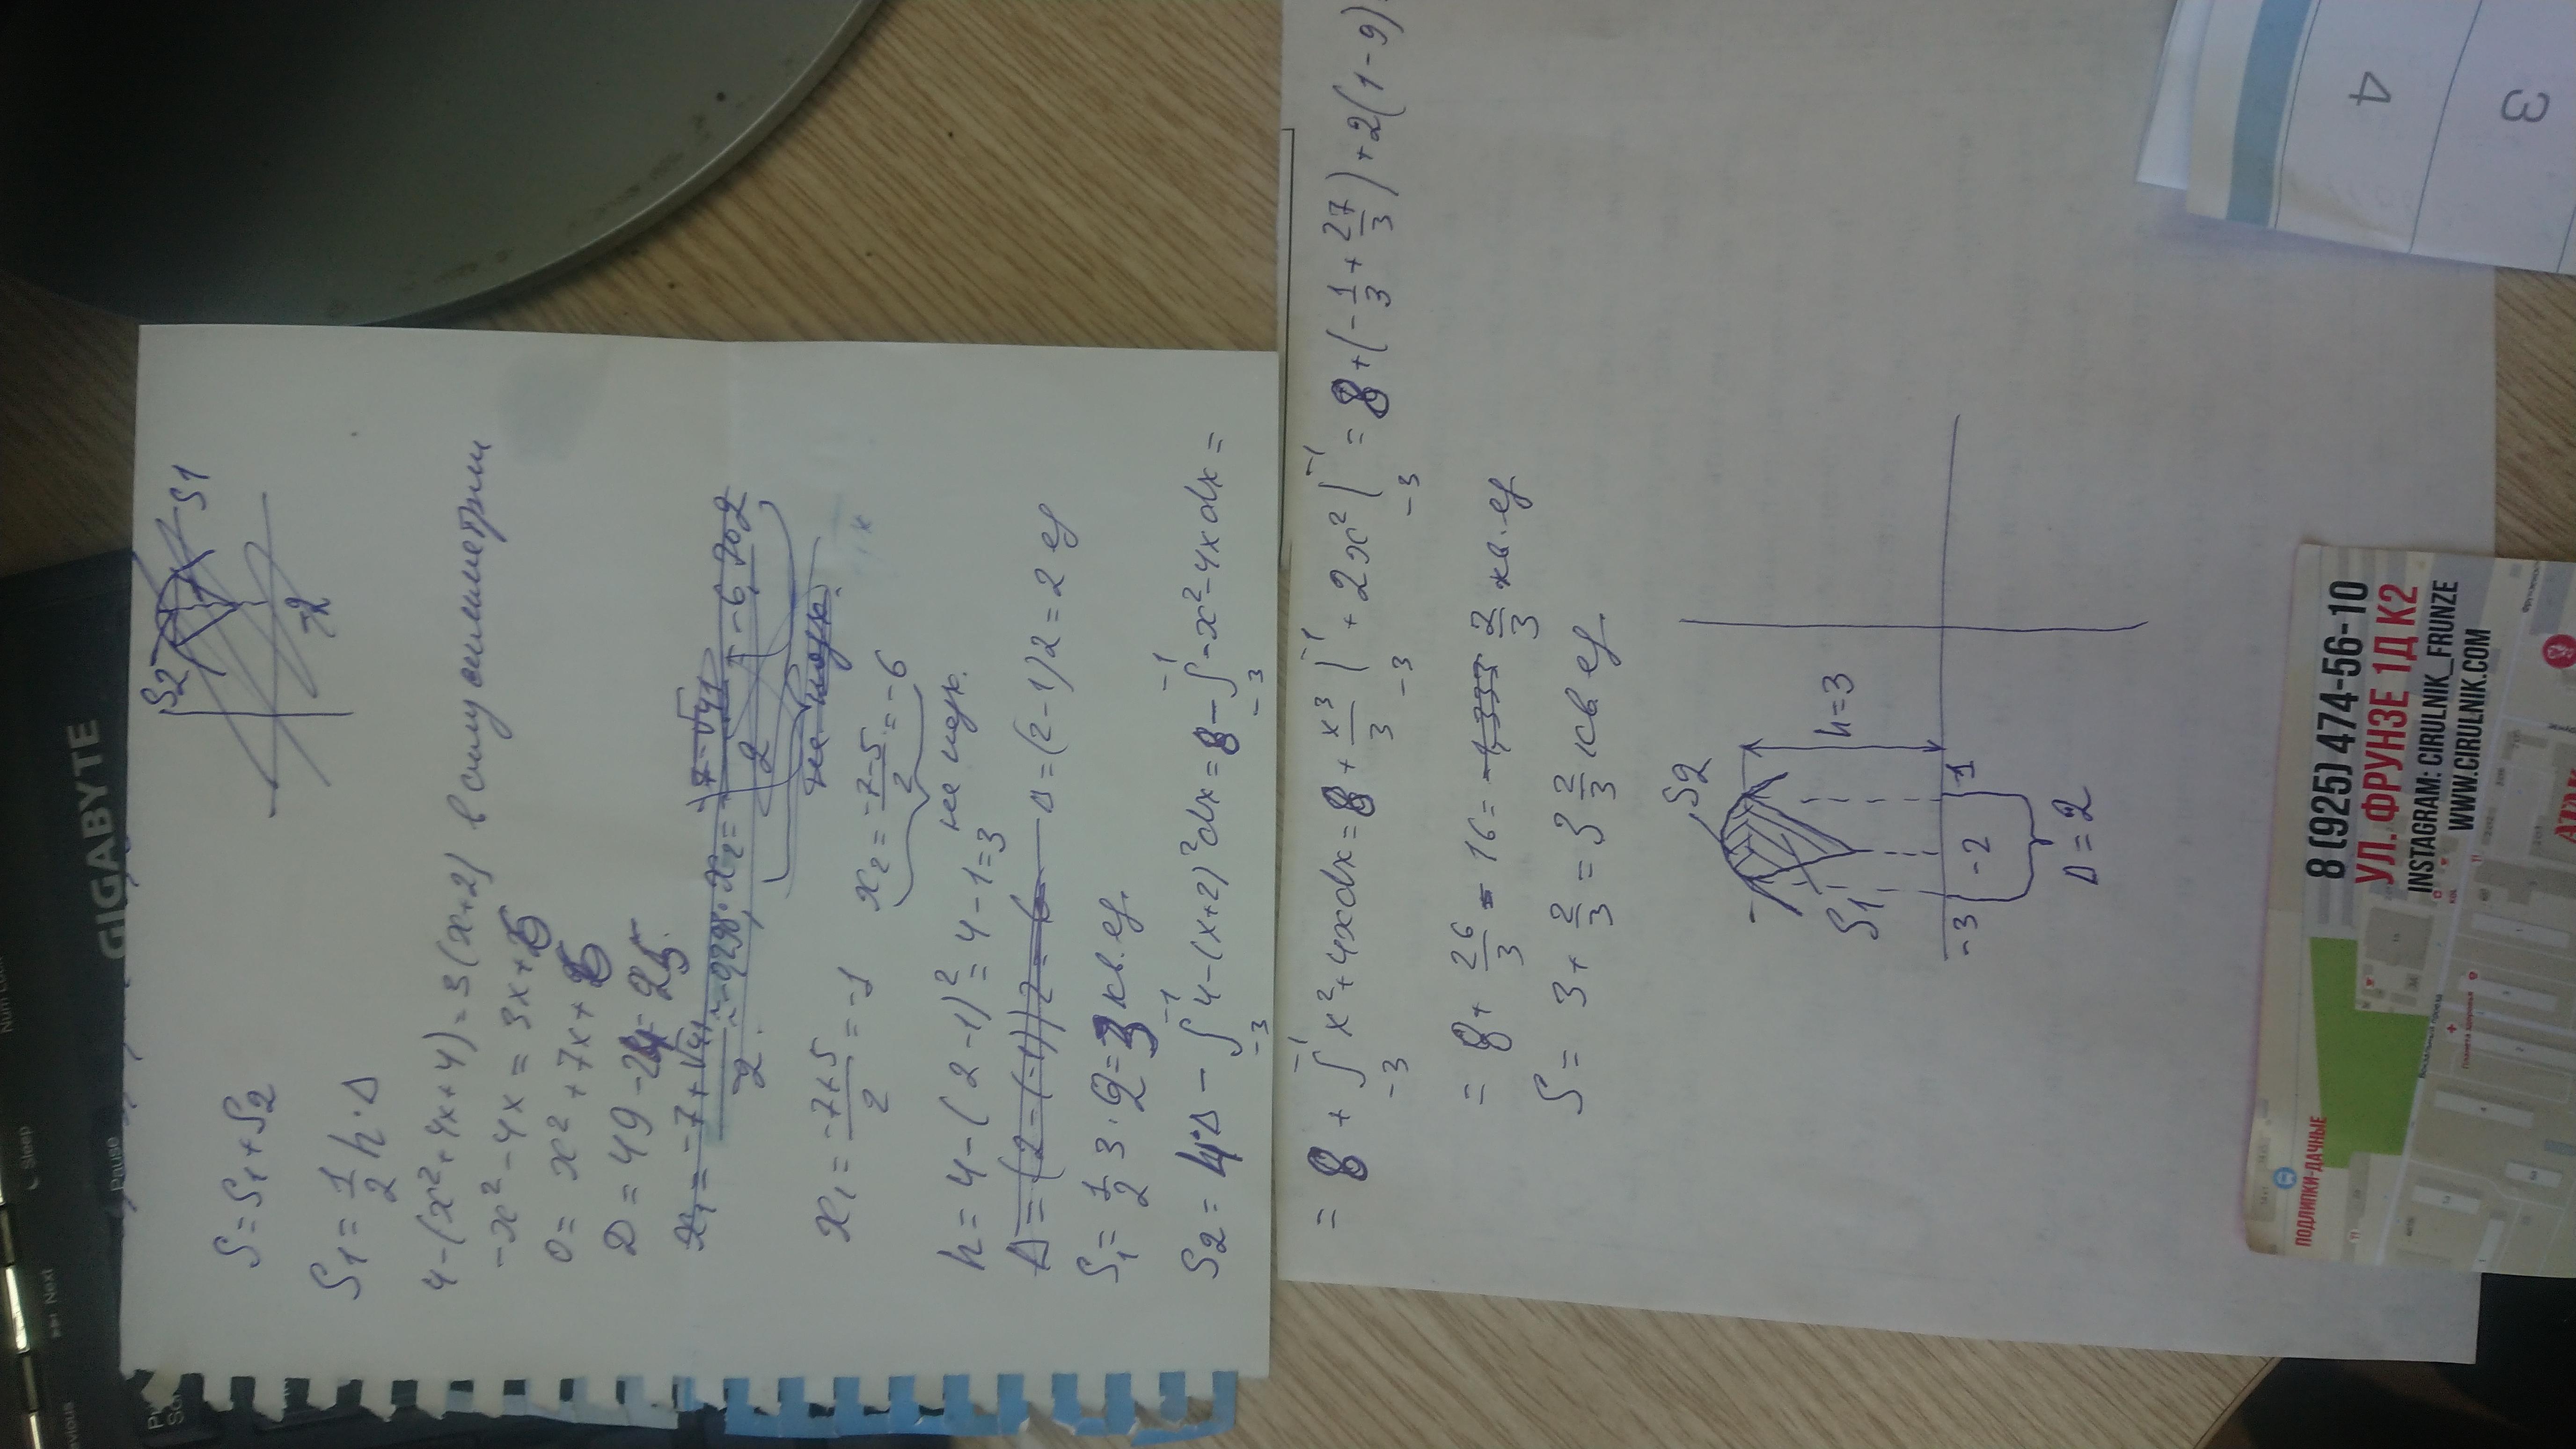 S = S1 + S2
S1 = 1/2 h · Δ
4 - (x² + 4x + 4) = 3(x+2) в силу симметрии
-x² - 4x = 3x + 6
0 = x² + 7x + 6
D = 49 - 24 = 25
x1 = (-7+√41)/2 ≈ -0,298. x2 = (-7-√41)/2 = -6,702
не подх.
x1 = (-7+5)/2 = -1
x2 = (-7-5)/2 = -6
не подх.
h = 4 - (2-1)² = 4 - 1 = 3
Δ = (2-(-1))2 = 6
Δ = (2-1)2 = 2 ед
S1 = 1/2 3 · 2 = 3 кв. ед.
S2 = 4·Δ - ∫₋₃⁻¹ 4-(x+2)² dx = 8 - ∫₋₃⁻¹ -x²-4x dx =
S2
S1
-2
= 8 + ∫₋₃⁻¹ x²+4x dx = 8 + x³/3 |₋₃⁻¹ + 2x² |₋₃⁻¹ = 8 + (-1/3 + 27/3) + 2(1-9)
= 8 + 26/3 - 16 = 2/3 кв. ед
S = 3 + 2/3 = 3 2/3 кв ед.
S2
S1
h=3
-3
-2
-1
Δ = 2
GIGABYTE
Pause
Sleep
Next
8 (925) 474-56-10
УЛ. ФРУНЗЕ 1Д К2
INSTAGRAM: CIRULNIK_FRUNZE
WWW.CIRULNIK.COM
ПОДЛИПКИ-ДАЧНЫЕ
4
3